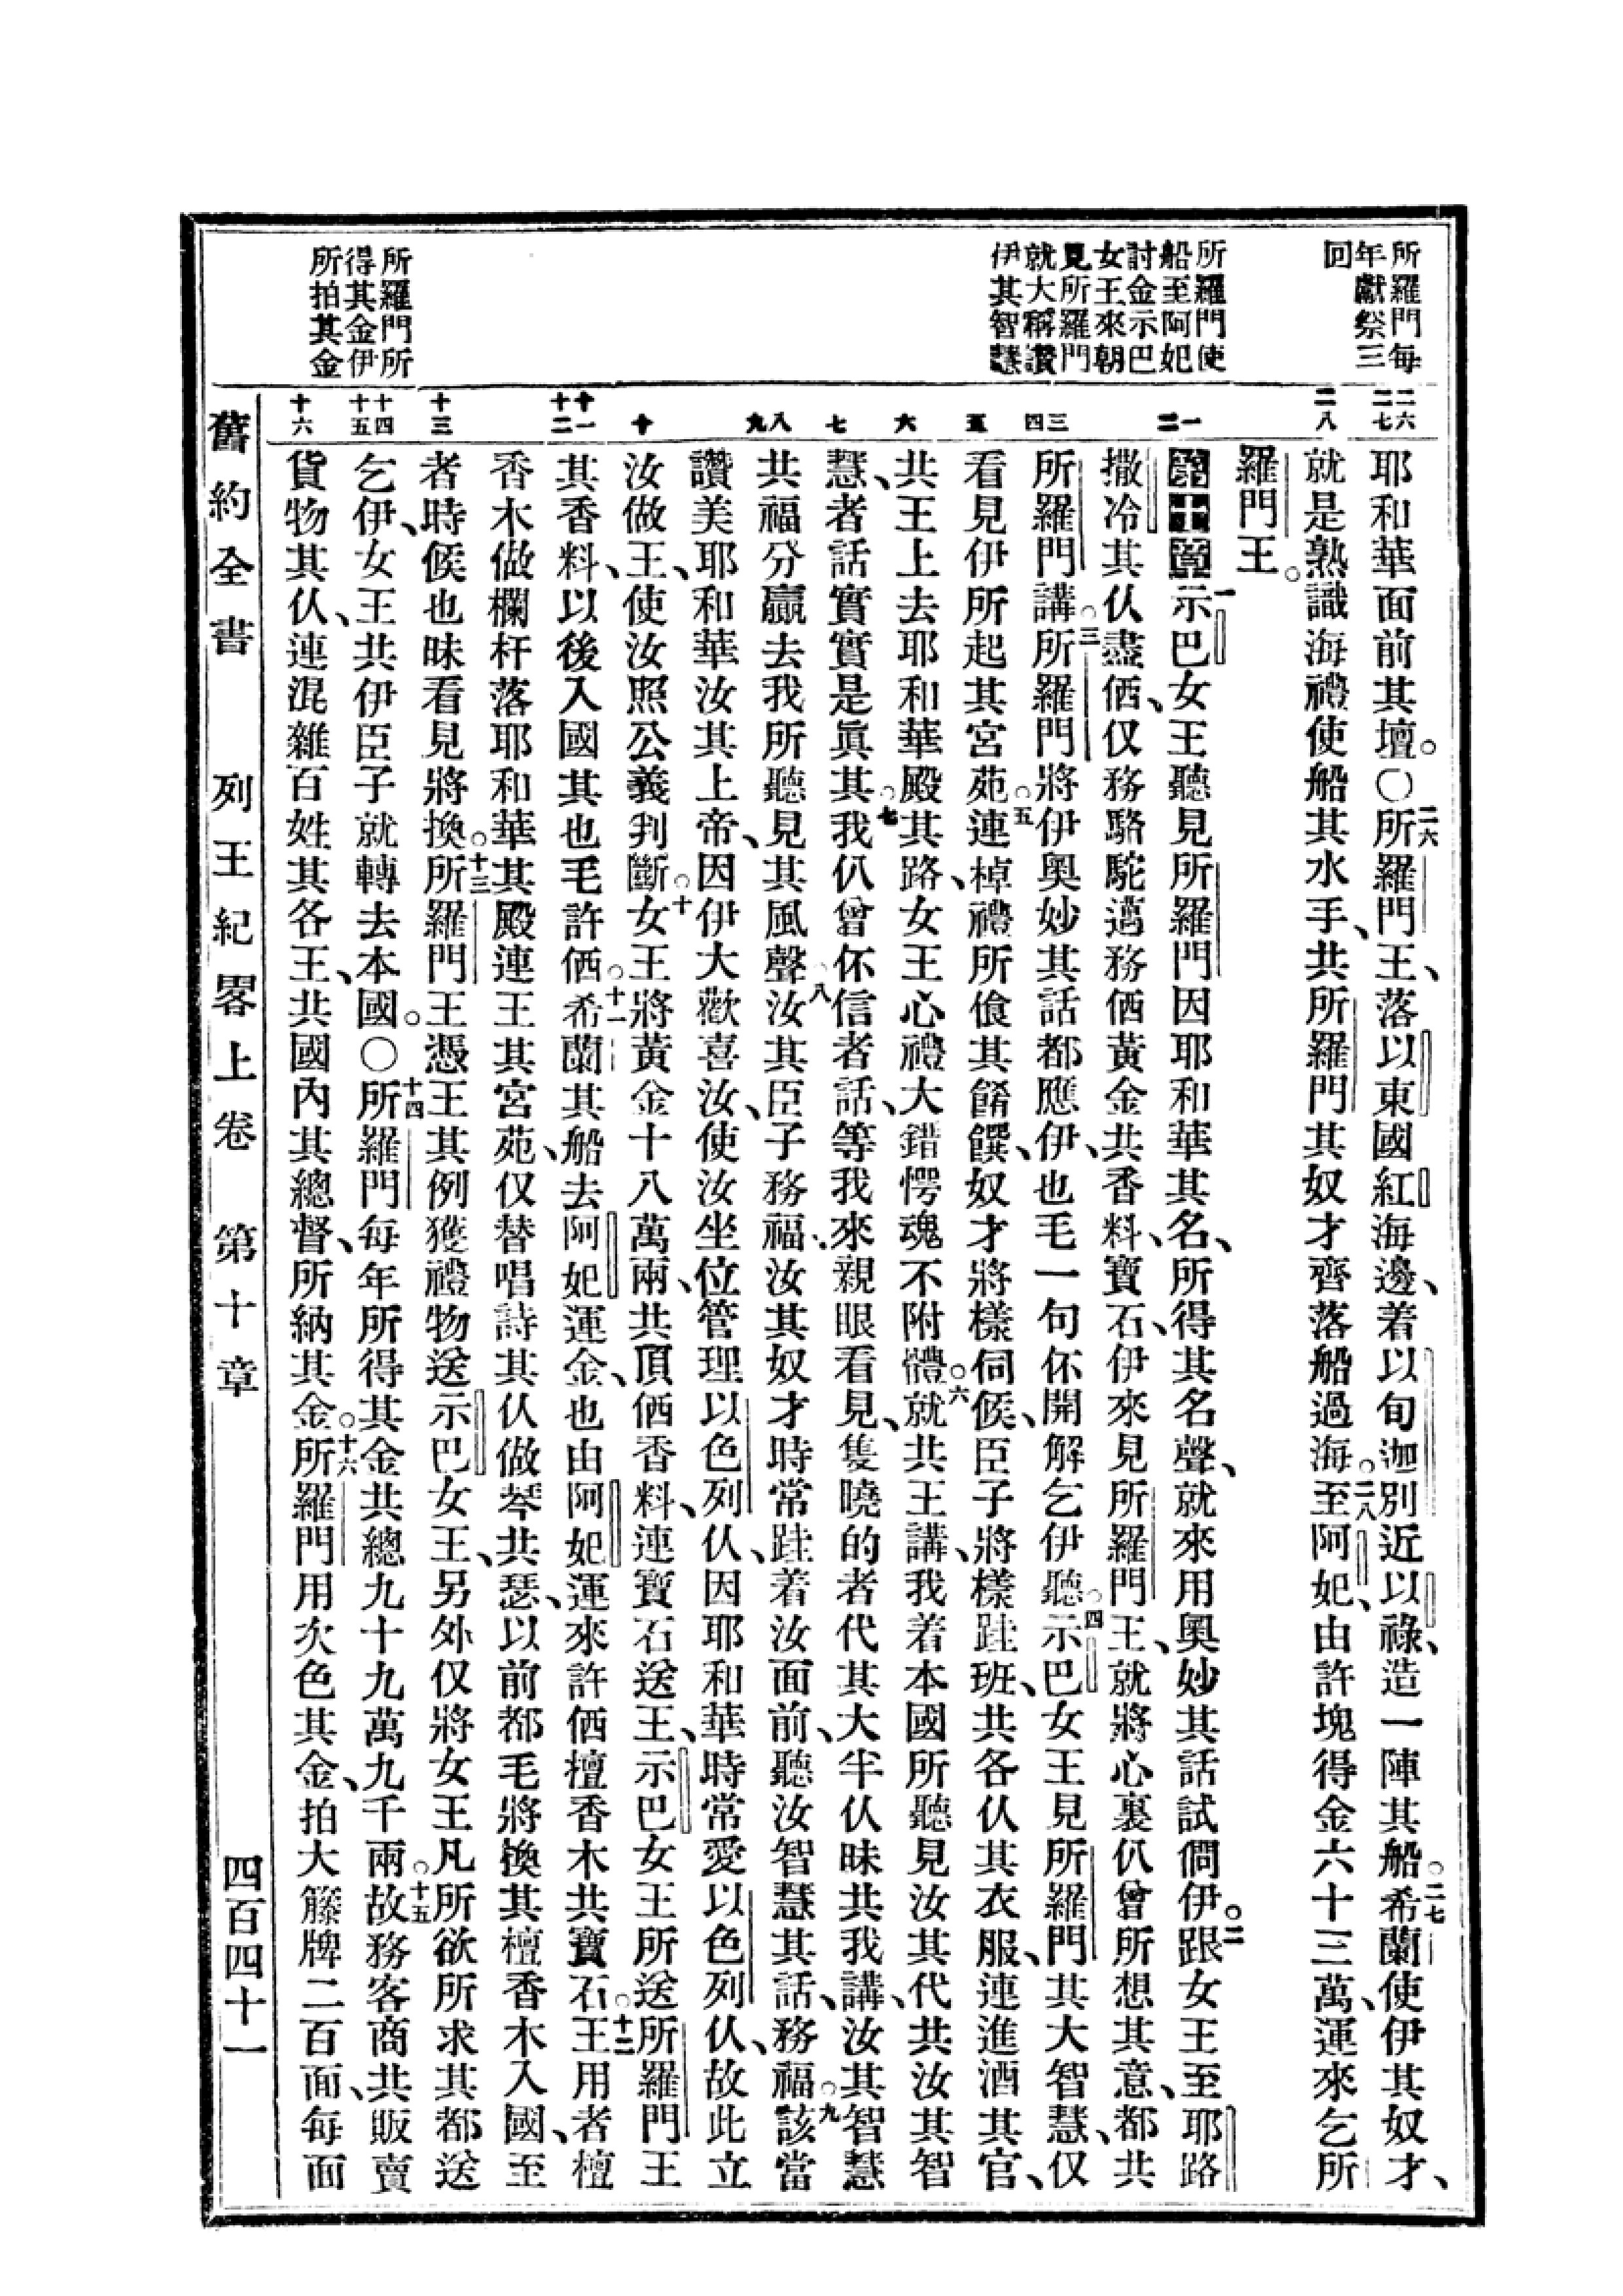 所羅門每
年獻祭三
回
所羅門使
船至阿妃
討金示巴
女王來朝
見所羅門
就大稱讚
伊其智慧
所羅門所
得其金伊
所拍其金
二六
二七
二八
一
二
三
四
五
六
七
八
九
十
十一
十二
十三
十四
十五
十六
耶和華面前其壇。〇二六所羅門王、落以東國紅海邊、着以旬迦別近以祿、造一陣其船。二七希蘭使伊其奴才、
就是熟識海禮使船其水手、共所羅門其奴才齊落船過海。二八至阿妃、由許塊得金六十三萬、運來乞所
羅門王。
第十章一示巴女王聽見所羅門因耶和華其名、所得其名聲、就來用奧妙其話試伺伊。二跟女王至耶路
撒冷其仫盡價、仅務駱駝邁務価黃金共香料、寶石、伊來見所羅門王、就將心裏仈曾所想其意、都共
所羅門講。三所羅門將伊奧妙其話都應伊、也毛一句伓開解乞伊聽。四示巴女王見所羅門其大智慧、仅
看見伊所起其宮苑。五連棹禮所飡其餚饌、奴才將樣伺候、臣子將樣跬班、共各仫其衣服、連進酒其官、
共王上去耶和華殿其路、女王心禮大錯愕魂不附體。六就共王講、我着本國所聽見汝其代共汝其智
慧、者話實實是眞其。七我仈曾伓信者話、等我來親眼看見、隻曉的者代其大半仫昧共我講、汝其智慧
共福分贏去我所聽見其風聲。八汝其臣子務福、汝其奴才時常跬着汝面前、聽汝智慧其話、務福。九該當
讚美耶和華汝其上帝、因伊大歡喜汝、使汝坐位管理以色列仫、因耶和華時常愛以色列仫、故此立
汝做王、使汝照公義判斷。十女王將黃金十八萬兩、共頂価香料、連寶石送王、示巴女王所送所羅門王
其香料、以後入國其也毛許価。十一希蘭其船去阿妃運金、也由阿妃運來許価檀香木共寶石。十二王用者檀
香木做欄杆落耶和華其殿連王其宮苑、仅替唱詩其仫做琴共瑟、以前都毛將換其檀香木入國、至
者時候也昧看見將換。十三所羅門王憑王其例獲禮物送示巴女王、另外仅將女王凡所欲所求其都送
乞伊、女王共伊臣子就轉去本國。〇十四所羅門每年所得其金共總九十九萬九千兩。十五故務客商共販賣
貨物其仫、連混雜百姓其各王、共國內其總督、所納其金。十六所羅門用次色其金、拍大籐牌二百面、每面
舊約全書　列王紀畧上卷　第十章　四百四十一